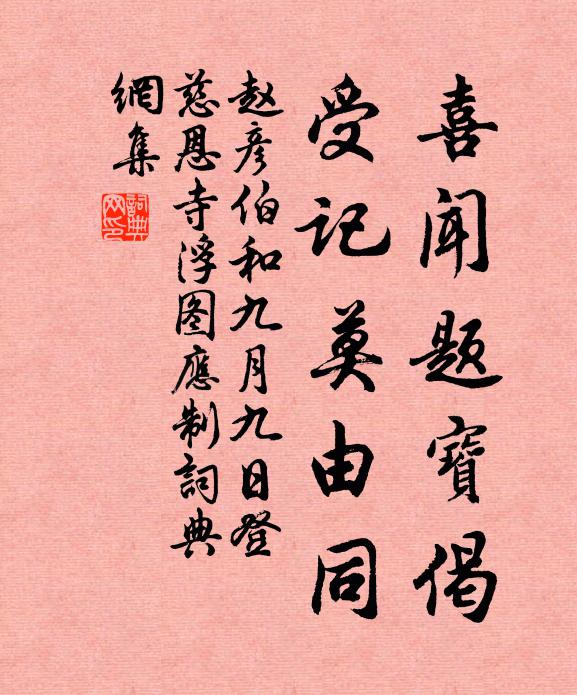 喜闻题寶偈
受记莫由同
赵彦伯和九月九日登
慈恩寺浮图應制詞典
網集
詞典网印